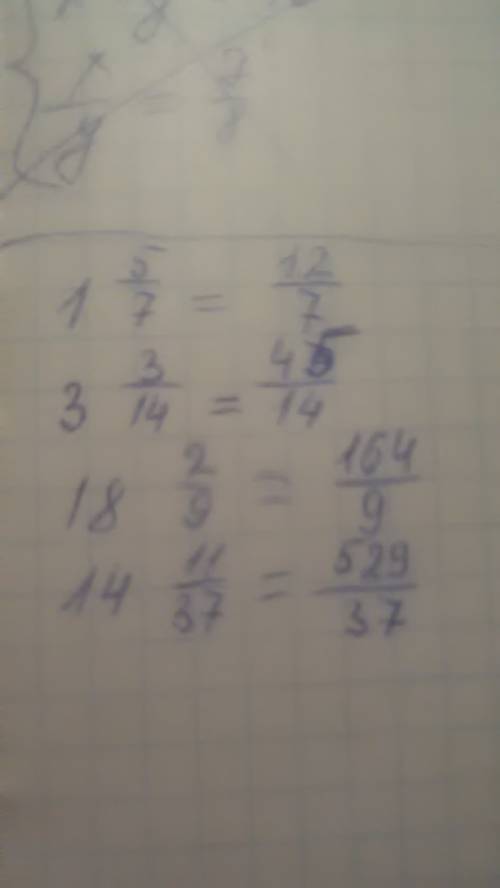 x/y = 7/8
1 5/7 = 12/7
3 3/14 = 45/14
18 2/9 = 164/9
14 11/37 = 529/37